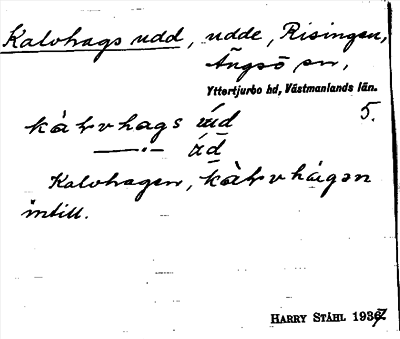 Kalvhags udd, udde, Risingen,
Ängsö sn,
Yttertjurbo hd, Västmanlands län.
5.
kàlvhags ùd
—"— ùd
Kalvhagen, kàlvhágən
intill.
HARRY STÅHL 1937